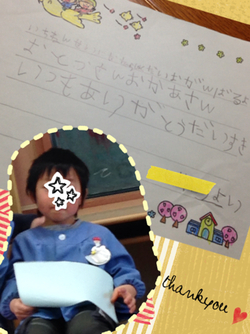 がんばるよ
おとうさんおかあさん
いつもありがとうだいすき
より
thankyou